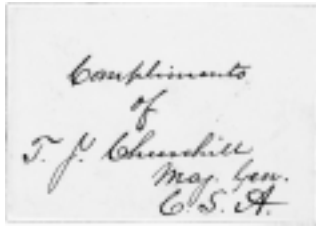 Compliments
of
T. J. Churchill
Maj. Gen.
C. S. A.